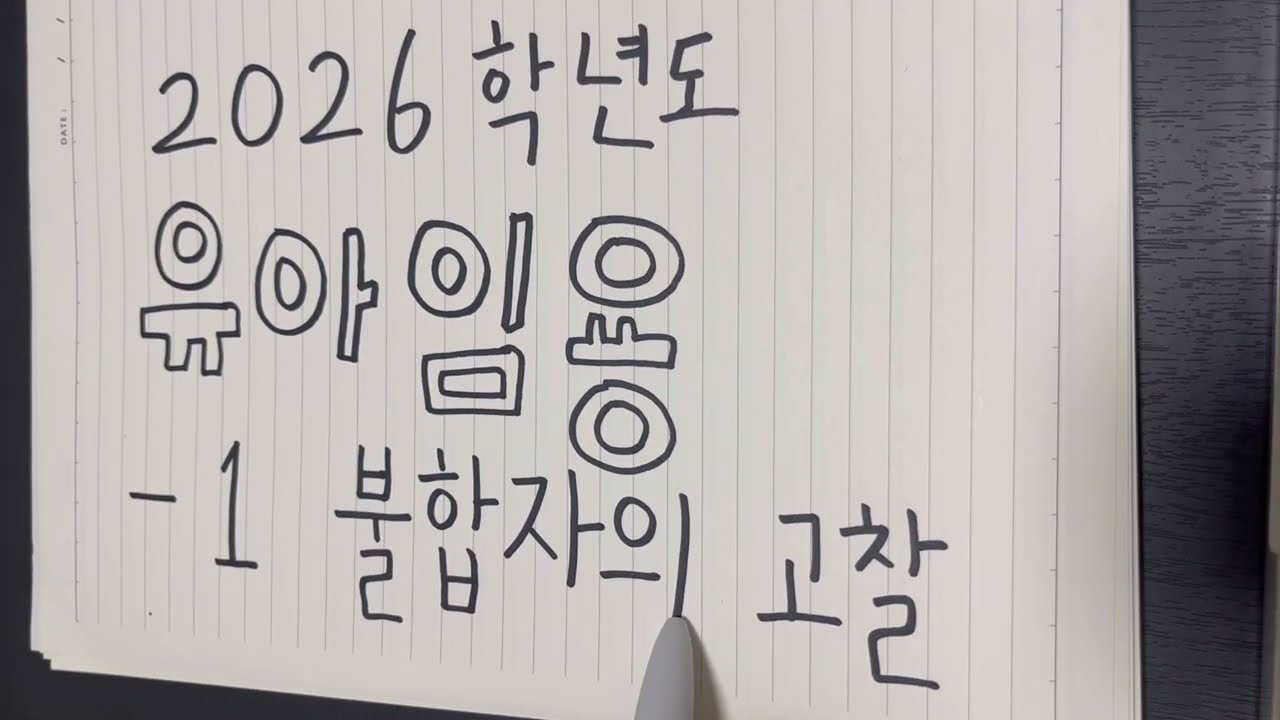 2026 학년도
유아임용
-1 불합자의 고찰
DATE :